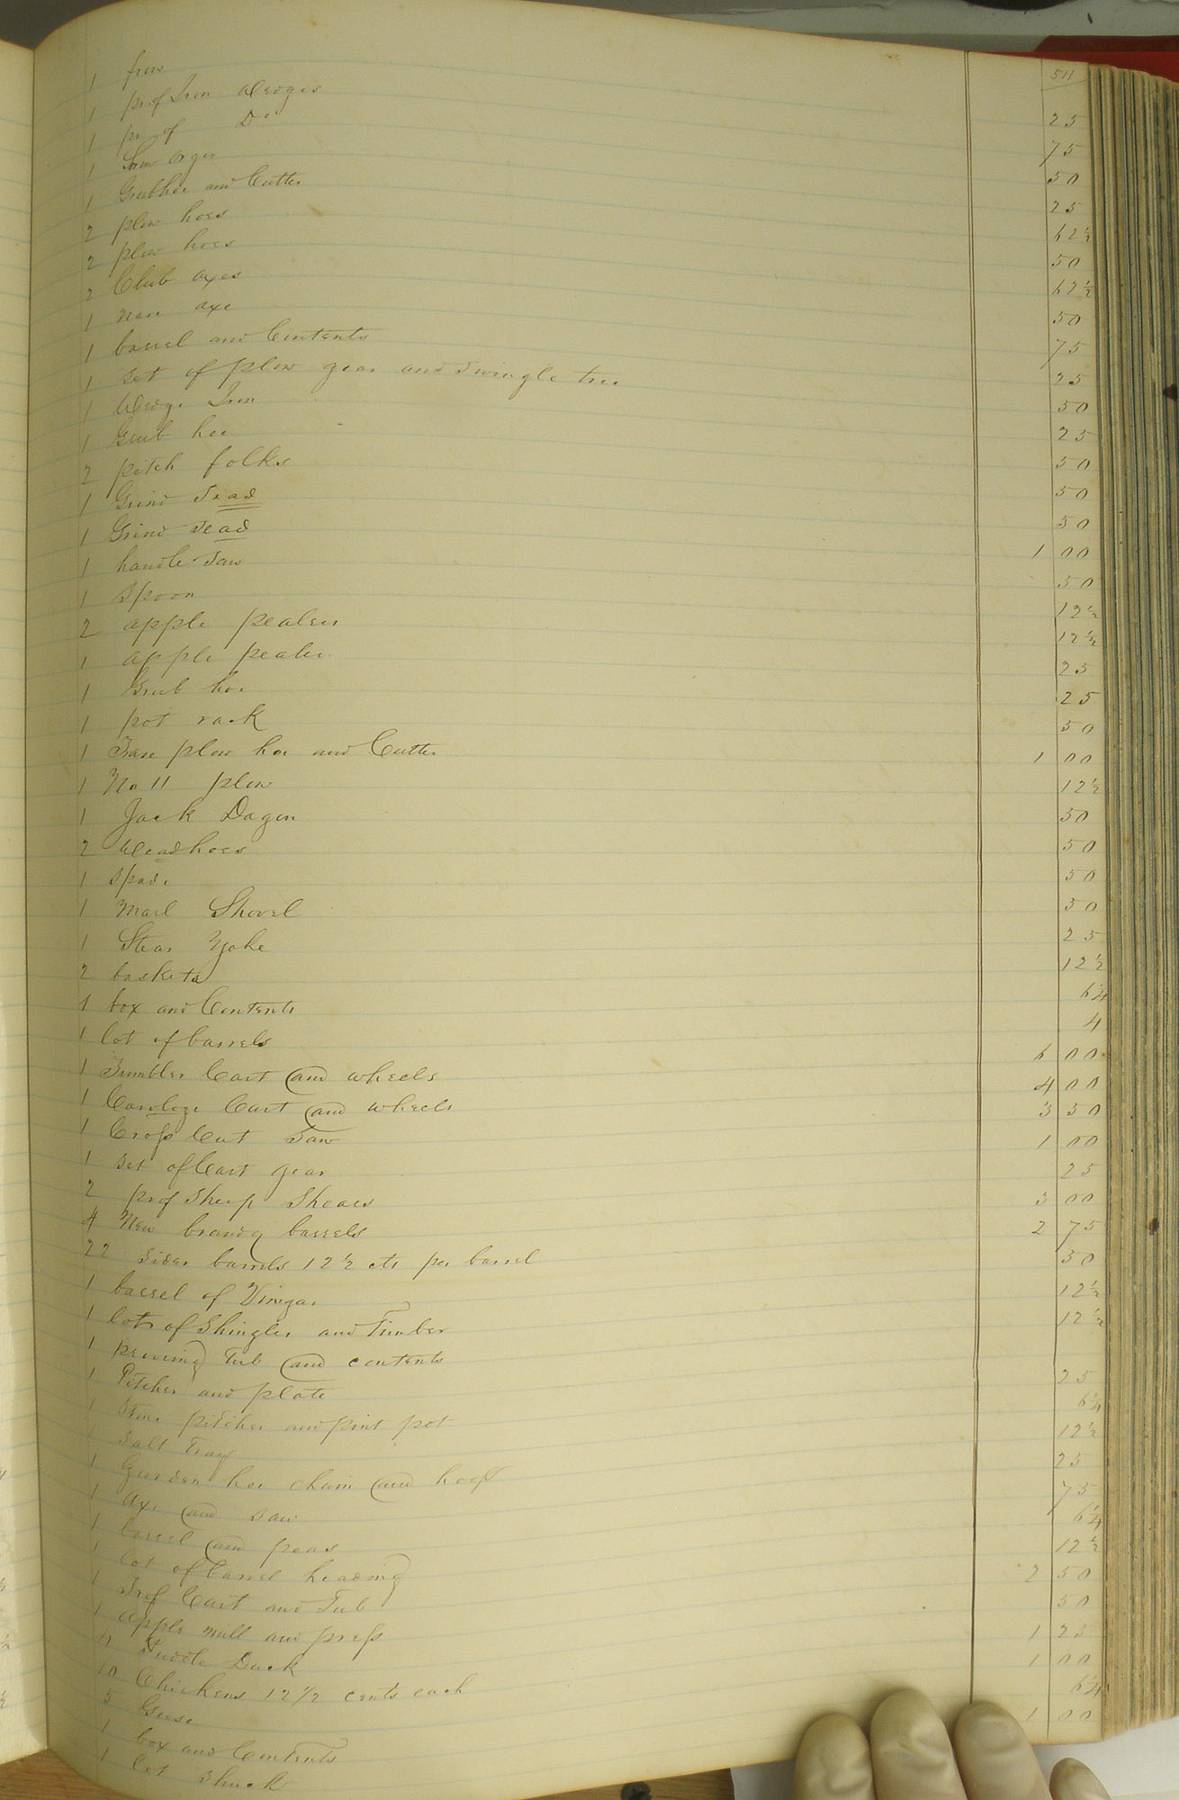 511
1 frow 25
1 pr of Iron Wedges 75
1 pr of Do 50
1 Grubhoe and Cutter 62½
2 plow hoes 50
2 plow hoes 62½
2 Club axes 50
1 new axe 75
1 barrel and Contents 25
1 set of plow gear and swingle tree 50
1 Wedge Iron 25
1 Grub hoe 50
2 pitch folks 50
1 Grind stead 50
1 Grind stead 1 00
1 handle saw 50
1 spoon 12½
2 apple pealers 12½
1 apple pealer 25
1 Grub hoe 25
1 pot rack 50
1 plow hoe and Cutter 1 00
1 No 11 plow 12½
1 Jack Dagon 50
2 Weadhoes 50
1 spade 50
1 Marl Shovel 50
1 Stear Yoke 25
2 baskets 12½
1 box and Contents 6¼
1 lot of barrels 4
1 Tumbler Cart and wheels 6 00
1 Carolege Cart and wheels 4 00
1 Cross Cut Saw 3 50
1 set of Cart gear 1 00
2 pr of Sheep Shears 25
4 New brandy barrels 3 00
22 sider barrels 12½ cts per barrel 2 75
1 barrel of Vinegar 50
1 lot of Shingles and Timber 12½
1 Tub and contents 12½
1 Pitcher and plate
1 Stone pitcher and pint pot 25
Salt Tray 6¼
1 Garden hoe chain and hoop 12½
1 axe and saw 25
1 barrel and peas 75
1 lot of barrel heading 6¼
1 Cart and Tub 12½
1 apple mill and press 2 50
Puddle Duck 50
10 Chickens 12½ cents each 1 25
5 Geese 1 00
1 box and Contents 6¼
1 lot Shuck 1 00